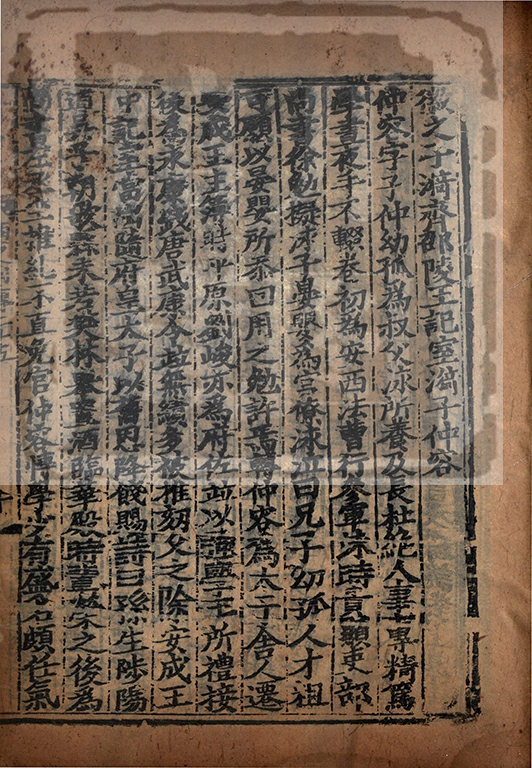 徽之子漪齊邵陵王記室漪子仲容
仲容字子仲幼孤爲叔父泳所養及長杜絶人事專精篤
學晝夜手不輟卷初爲安西法曹行參軍泳時貴顯吏部
尚書徐勉擬泳子晏嬰爲宮僚泳泣曰兄子幼孤人才粗
可願以晏嬰所忝回用之勉許焉轉仲容爲太子舍人遷
安成王主簿時平原劉峻亦爲府佐並以強學王所禮接
後爲永康錢唐武康令並無績多被推劾久之除安成王
中記室當出隨府皇太子以舊恩降餞賜詩曰孫生陟陽
道吳子朝歌縣未若樊林舉置酒臨華殿時輩榮之後爲
尚書左丞坐推糾不直免官仲容博學少有盛名頗任氣